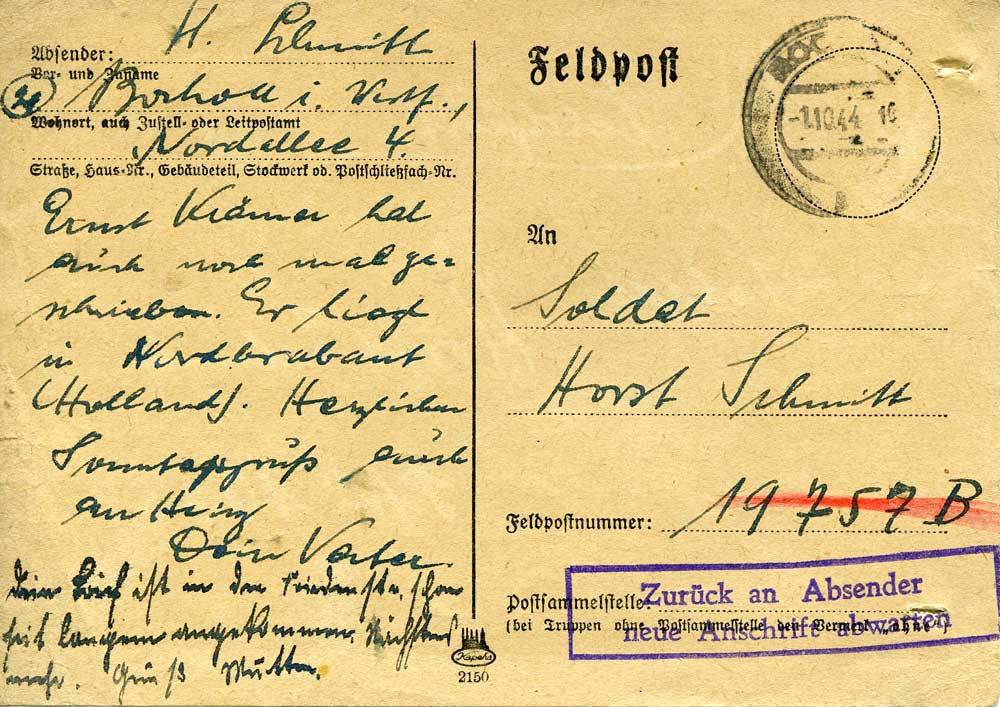 Absender: H. Schmitt
Vor- und Zuname
Bocholt i. Westf.,
Wohnort, auch Zustell- oder Leitpostamt
Nordallee 4.
Straße, Haus-Nr., Gebäudeteil, Stockwerk od. Postschließfach-Nr.
Ernst Krämer hat
auch noch mal ge-
schrieben. Er liegt
in Nordbrabant
(Holland). Herzlichen
Sonntagsgruß auch
an Heinz
Dein Vater.
Dein Brief ist in der schon
seit langem angekommen. Nächstens
mehr. Gruß Mutter.
Kapeha
2150
Feldpost
-1.10.44
An
Soldat
Horst Schmitt
Feldpostnummer: 19757 B
Postsammelstelle
(bei Truppen ohne Postsammelstelle den Vermerk „ohne“)
Zurück an Absender
neue Anschrift abwarten